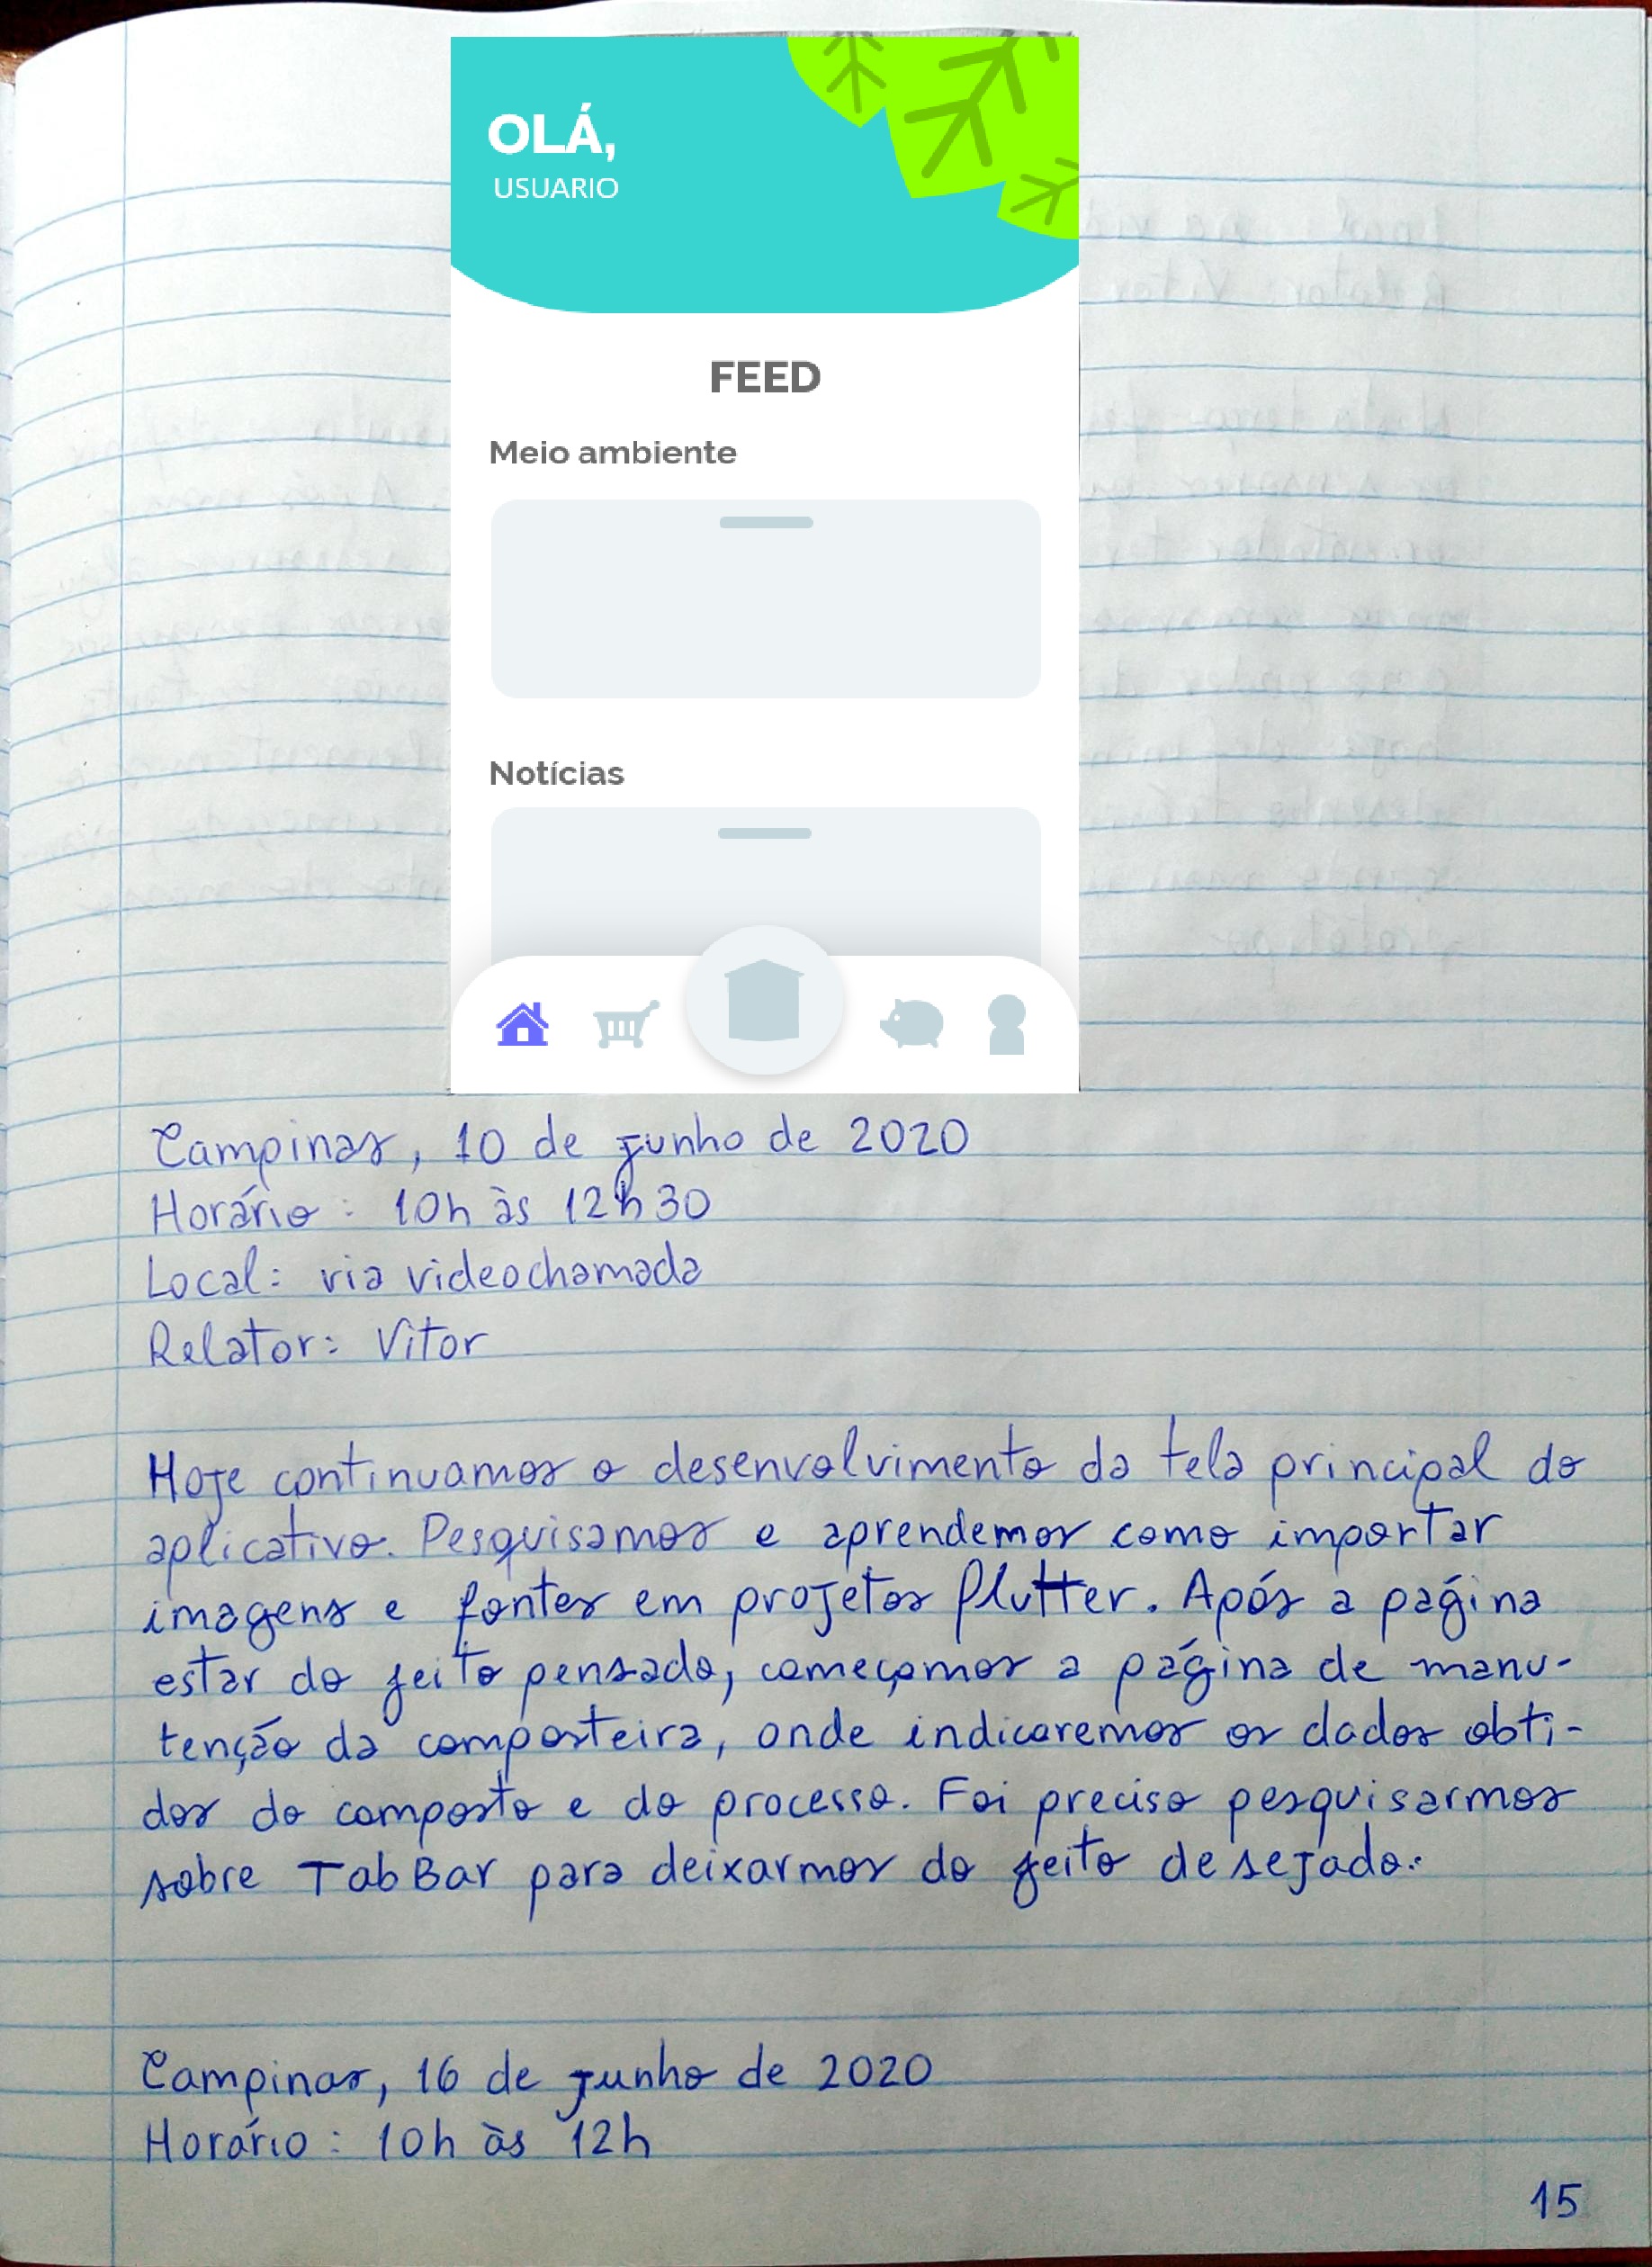 OLÁ,
USUARIO
FEED
Meio ambiente
Notícias
Campinas, 10 de junho de 2020
Horário: 10h às 12h30
Local: via videochamada
Relator: Vitor
Hoje continuamos o desenvolvimento da tela principal do
aplicativo. Pesquisamos e aprendemos como importar
imagens e fontes em projetos flutter. Após a página
estar do jeito pensado, começamos a página de manu-
tenção da composteira, onde indicaremos os dados obti-
dos do composto e do processo. Foi preciso pesquisarmos
sobre TabBar para deixarmos do jeito desejado.
Campinas, 16 de junho de 2020
Horário: 10h às 12h
15